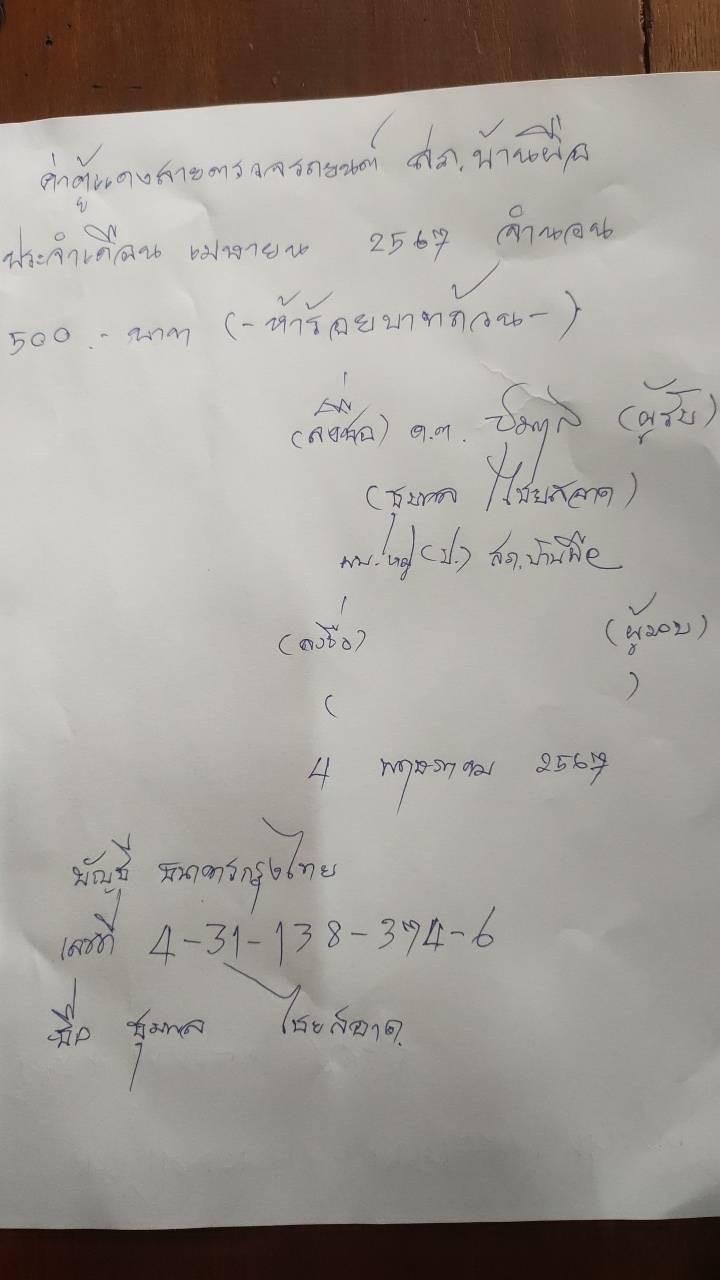 ค่าตู้แดงสายตรวจรถยนต์ สภ.บ้านผือ
ประจำเดือน เมษายน 2567 จำนวน
500.- บาท (-ห้าร้อยบาทถ้วน-)
(ลงชื่อ) ด.ต. (ผู้รับ)
(ชุมพล ไชยสอาด)
ผบ.หมู่ (ป.) สภ.บ้านผือ
(ลงชื่อ) (ผู้มอบ)
( )
4 พฤษภาคม 2567
บัญชี ธนาคารกรุงไทย
เลขที่ 4-31-138-374-6
ชื่อ ชุมพล ไชยสอาด